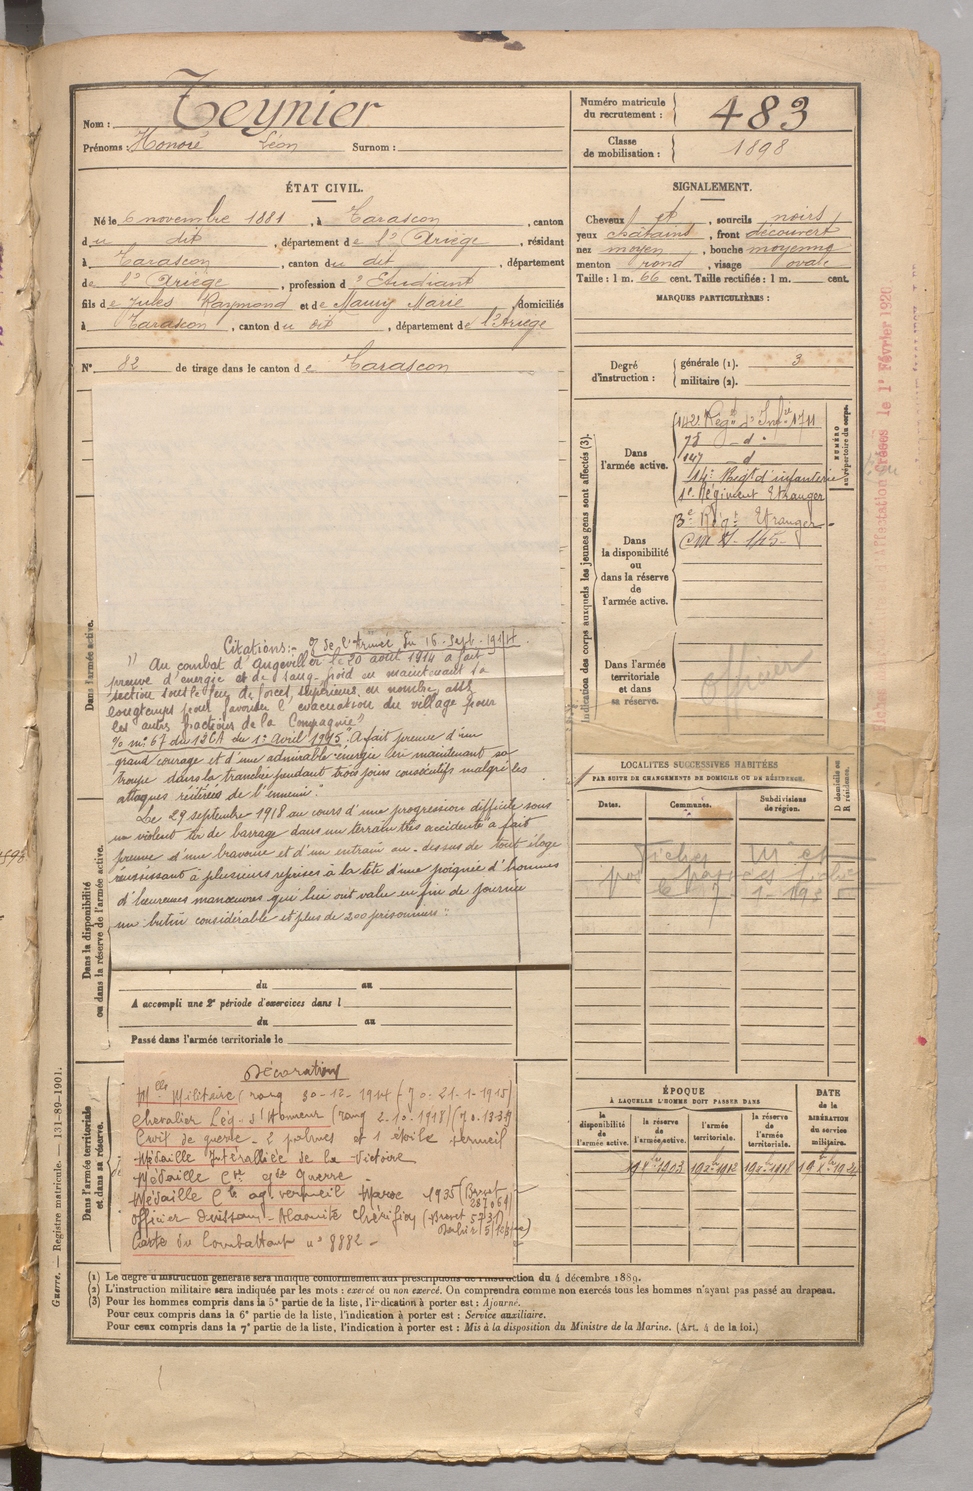 Nom : Teynier
Prénoms : Honoré Léon Surnom :
Numéro matricule
du recrutement : 483
Classe
de mobilisation : 1898
ÉTAT CIVIL.
Né le 6 novembre 1881, à Tarascon, canton
du dit, département de l'Ariège, résidant
à Tarascon, canton du dit, département
de l'Ariège, profession d'Etudiant
fils de Jules Raymond et de Maury Marie domiciliés
à Tarascon, canton du dit, département de l'Ariège
N° 82 de tirage dans le canton de Tarascon
SIGNALEMENT.
Cheveux et, sourcils noirs
yeux chatains, front découvert
nez moyen, bouche moyenne
menton rond, visage ovale
Taille : 1 m. 66 cent. Taille rectifiée : 1 m. cent.
MARQUES PARTICULIÈRES :
Degré
d'instruction :
générale (1). 3
militaire (2).
Indication des corps auxquels les jeunes gens sont affectés (3).
NUMÉRO
au répertoire du corps.
Dans
l'armée active.
142 Régt d'Infie 1711
75 - d -
147 - d
14e Regt d'infanterie
1e Régiment Etranger
Dans
la disponibilité
ou
dans la réserve
de
l'armée active.
3e Régt Etranger
Dans
l'armée
territoriale
et dans
sa réserve.
officier
Dans l'armée active.
Citations:- de l'Armée du 16-Sept-1914.
1) Au combat d'Angeviller le 20 août 1914 a fait
preuve d'énergie et de sang-froid en maintenant sa
section sous le feu de forces supérieures en nombre assez
longtemps pour favoriser l'évacuation du village pour
les autres fractions de la Compagnie"
n° 67 du 12 CA du 1er Avril 1915 "A fait preuve d'un
grand courage et d'une admirable énergie en maintenant sa
troupe dans la tranchée pendant trois jours consécutifs malgré les
attaques réitérées de l'ennemi."
Le 29 septembre 1918 au cours d'une progression difficile sous
un violent tir de barrage dans un terrain très accidenté a fait
preuve d'une bravoure et d'un entrain au-dessus de tout éloge
réussissant à plusieurs reprises à la tête d'une poignée d'hommes
d'heureuses manœuvres qui lui ont valu en fin de journée
un butin considérable et plus de 200 prisonniers"
Dans la disponibilité
ou dans la réserve de l'armée active.
du au
A accompli une 2e période d'exercices dans l
du au
Passé dans l'armée territoriale le
LOCALITÉS SUCCESSIVES HABITÉES
PAR SUITE DE CHANGEMENTS DE DOMICILE OU DE RÉSIDENCE.
D domicile ou
R résidence.
Dates.
Communes.
Subdivisions
de région.
Dans l'armée territoriale
et dans sa réserve.
Décorations
Mlle Militaire (rang 30-12-1914 (J.O. 21-1-1915)
Chevalier Lég. d'Honneur (rang 2-10-1918)
Croix de guerre - 2 palmes et 1 étoile vermeil
Médaille Interalliée de la Victoire
Médaille Cve gde Guerre
Médaille Cle ag. vermeil Maroc 1935 (Brevet
Officier Ouissam-Alaouite Chérifien (Brevet
Carte du Combattant n° 8882 -
ÉPOQUE
À LAQUELLE L'HOMME DOIT PASSER DANS
la
disponibilité
de
l'armée active.
la réserve
de
l'armée active.
l'armée
territoriale.
la réserve
de
l'armée
territoriale.
DATE
de la
LIBÉRATION
du service
militaire.
Guerre. — Registre matricule. — 131-89-1901.
(1) Le degré d'instruction générale sera indiqué conformément aux prescriptions de l'instruction du 4 décembre 1889.
(2) L'instruction militaire sera indiquée par les mots : exercé ou non exercé. On comprendra comme non exercés tous les hommes n'ayant pas passé au drapeau.
(3) Pour les hommes compris dans la 5e partie de la liste, l'indication à porter est : Ajourné.
Pour ceux compris dans la 6e partie de la liste, l'indication à porter est : Service auxiliaire.
Pour ceux compris dans la 7e partie de la liste, l'indication à porter est : Mis à la disposition du Ministre de la Marine. (Art. 4 de la loi.)